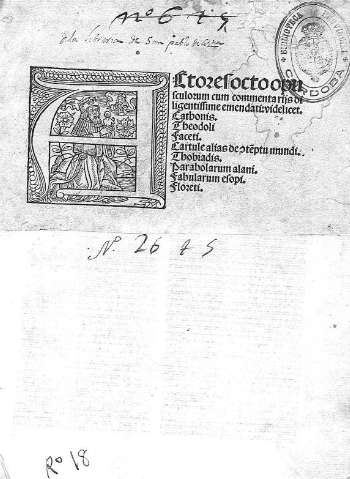 Nº 6 t 5
de la libreria de San pablo
BIBLIOTECA
CORDOBA
Actores octo opu
sculorum cum commentarijs di
ligentissime emendati videlicet.
Cathonis.
Theodoli
Faceti.
Cartule alias de ɔtẽptu mundi.
Thobiadis.
Parabolarum alani.
Fabularum esopi.
Floreti.
N. 26 t 5
Rº 18